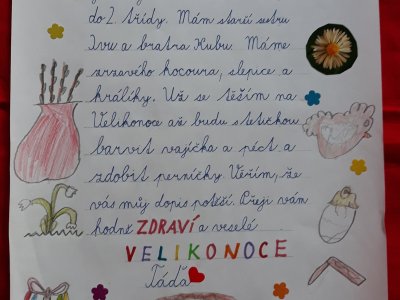 do 2. třídy. Mám starší sestru
Ivu a bratra Kubu. Máme
zrzavého kocoura, slepice a
králíky. Už se těším na
Velikonoce až budu štětičkou
barvit vajíčka a péct a
zdobit perníčky. Věřím, že
vás můj dopis potěší. Přeji vám
hodně ZDRAVÍ a veselé
VELIKONOCE
Táďa